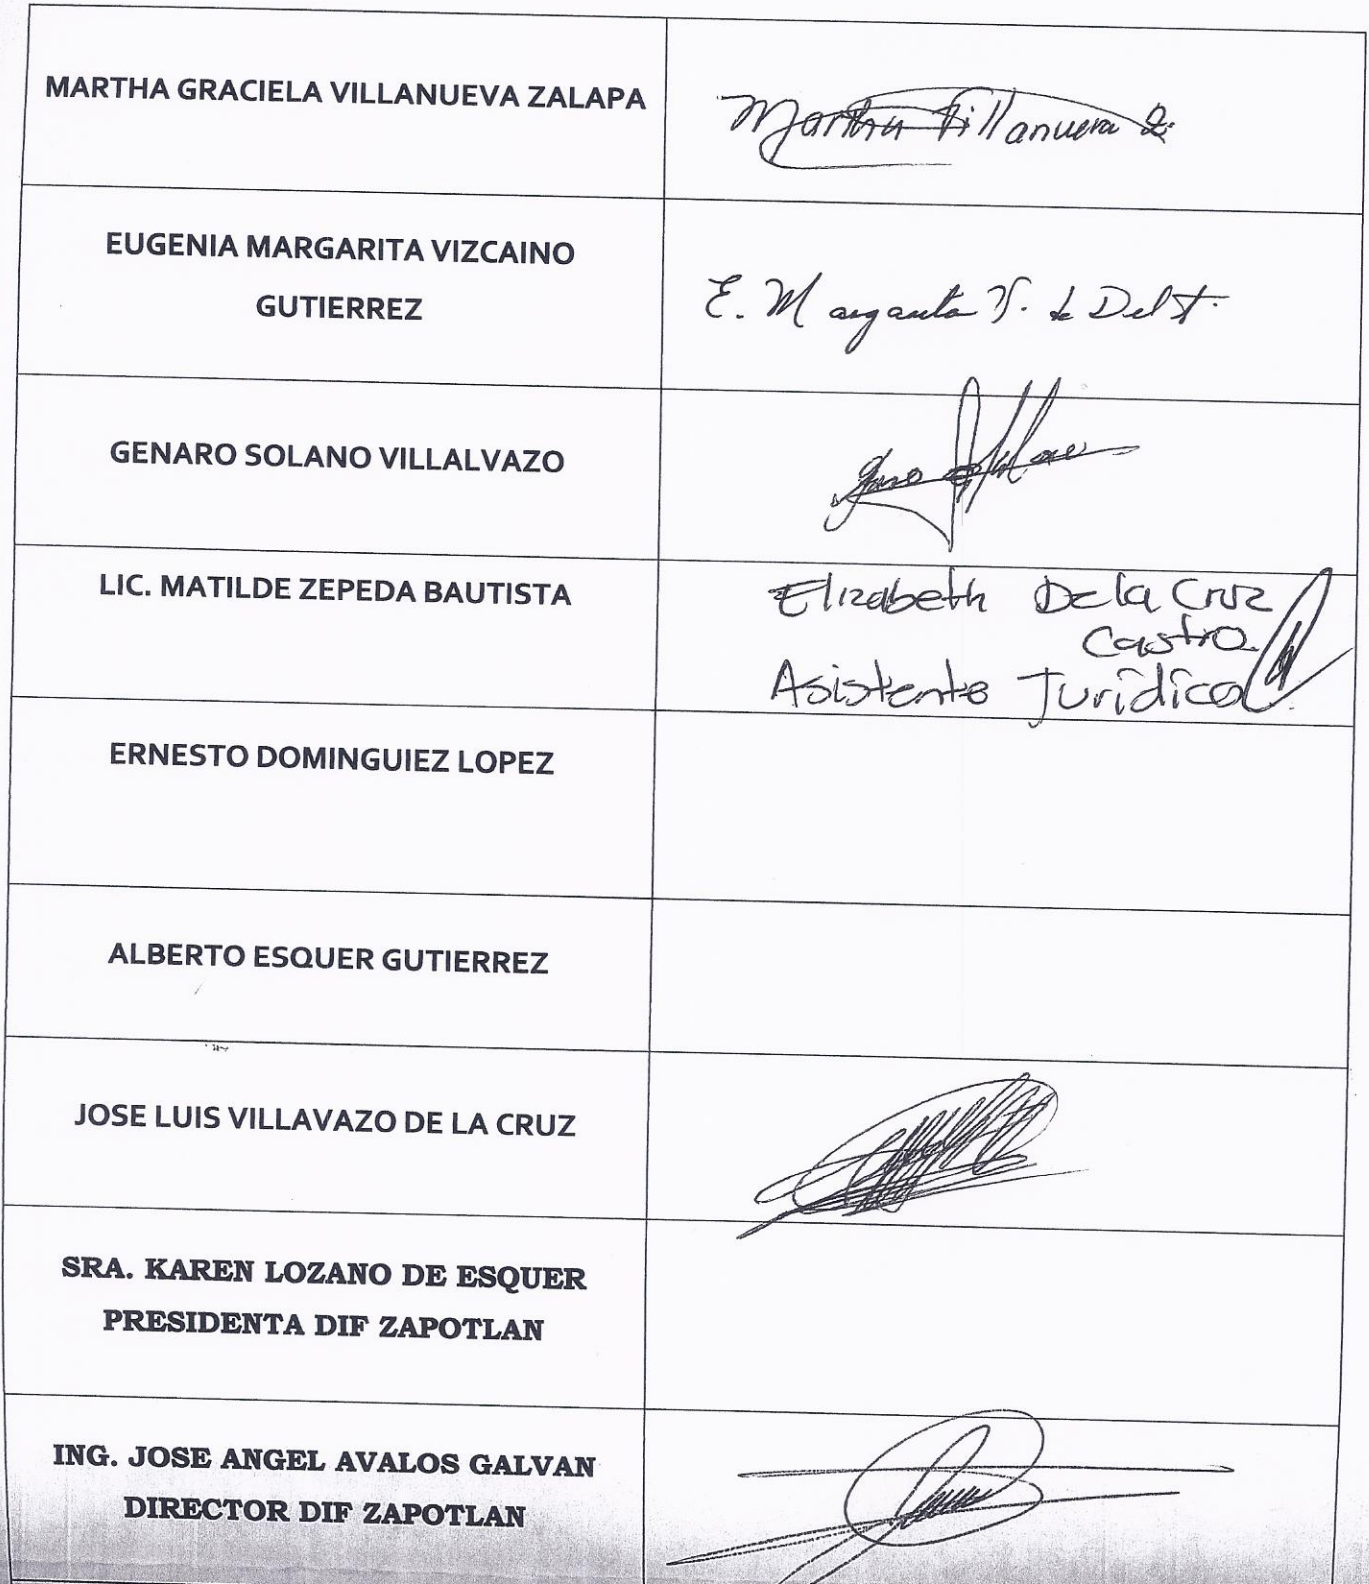 MARTHA GRACIELA VILLANUEVA ZALAPA
Martha Villanueva Z.
EUGENIA MARGARITA VIZCAINO
GUTIERREZ
E. Margarita V. de Del T.
GENARO SOLANO VILLALVAZO
LIC. MATILDE ZEPEDA BAUTISTA
Elizabeth De la Cruz
Castro
Asistente Jurídico
ERNESTO DOMINGUIEZ LOPEZ
ALBERTO ESQUER GUTIERREZ
JOSE LUIS VILLAVAZO DE LA CRUZ
SRA. KAREN LOZANO DE ESQUER
PRESIDENTA DIF ZAPOTLAN
ING. JOSE ANGEL AVALOS GALVAN
DIRECTOR DIF ZAPOTLAN